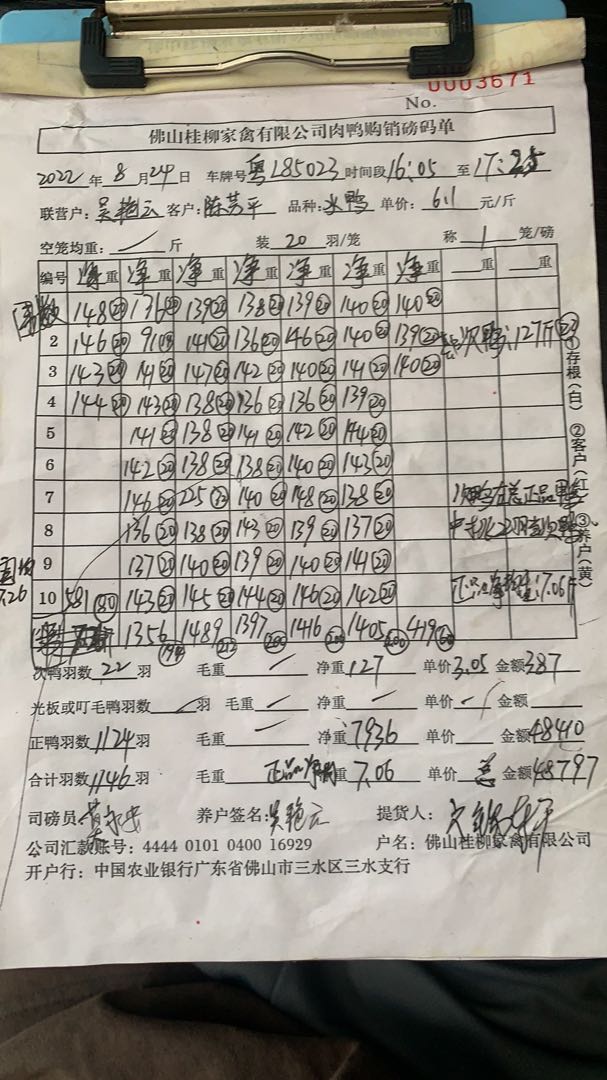 0003671
No.
佛山桂柳家禽有限公司肉鸭购销磅码单
2022年8月24日 车牌号粤L85023时间段16:05至17:25
联营户:吴艳云 客户:陈芳平 品种:水鸭 单价:6.1元/斤
空笼均重: / 斤 装 20 羽/笼 称 1 笼/磅
编号 净重 净重 净重 净重 净重 净重 净重 重 重
148⑳ 136⑳ 139⑳ 138⑳ 139⑳ 140⑳ 140⑳
2 146⑳ 141⑳ 136⑳ 146⑳ 140⑳ 139⑳ 次鸭:127斤㉒
3 143⑳ 141⑳ 147⑳ 142⑳ 140⑳ 141⑳ 140⑳
4 144⑳ 143⑳ 138⑳ 136⑳ 136⑳ 139⑳
5 141⑳ 138⑳ 141⑳ 142⑳ 144⑳
6 142⑳ 138⑳ 138⑳ 140⑳ 143⑳
7 146⑳ 225㉜ 140⑳ 148⑳ 138⑳
8 136⑳ 138⑳ 143⑳ 139⑳ 137⑳
9 137⑳ 140⑳ 139⑳ 140⑳ 141⑳
7.26
10 581(80) 143⑳ 145⑳ 144⑳ 146⑳ 142⑳ :7.06斤
1356 1489(212) 1397(200) 1416(200) 1405(200) 419(60)
次鸭羽数 22 羽 毛重 / 净重 127 单价3.05 金额387
光板或叮毛鸭羽数 / 羽 毛重 / 净重 / 单价 / 金额
正鸭羽数1124羽 毛重 / 净重7936 单价 金额48410
合计羽数1146羽 毛重 正品净均重 7.06 单价 总 金额48797
司磅员: 养户签名:吴艳云 提货人:
公司汇款账号: 4444 0101 0400 16929 户名: 佛山桂柳家禽有限公司
开户行: 中国农业银行广东省佛山市三水区三水支行
①存根(白) ②客户(红) ③养户(黄)